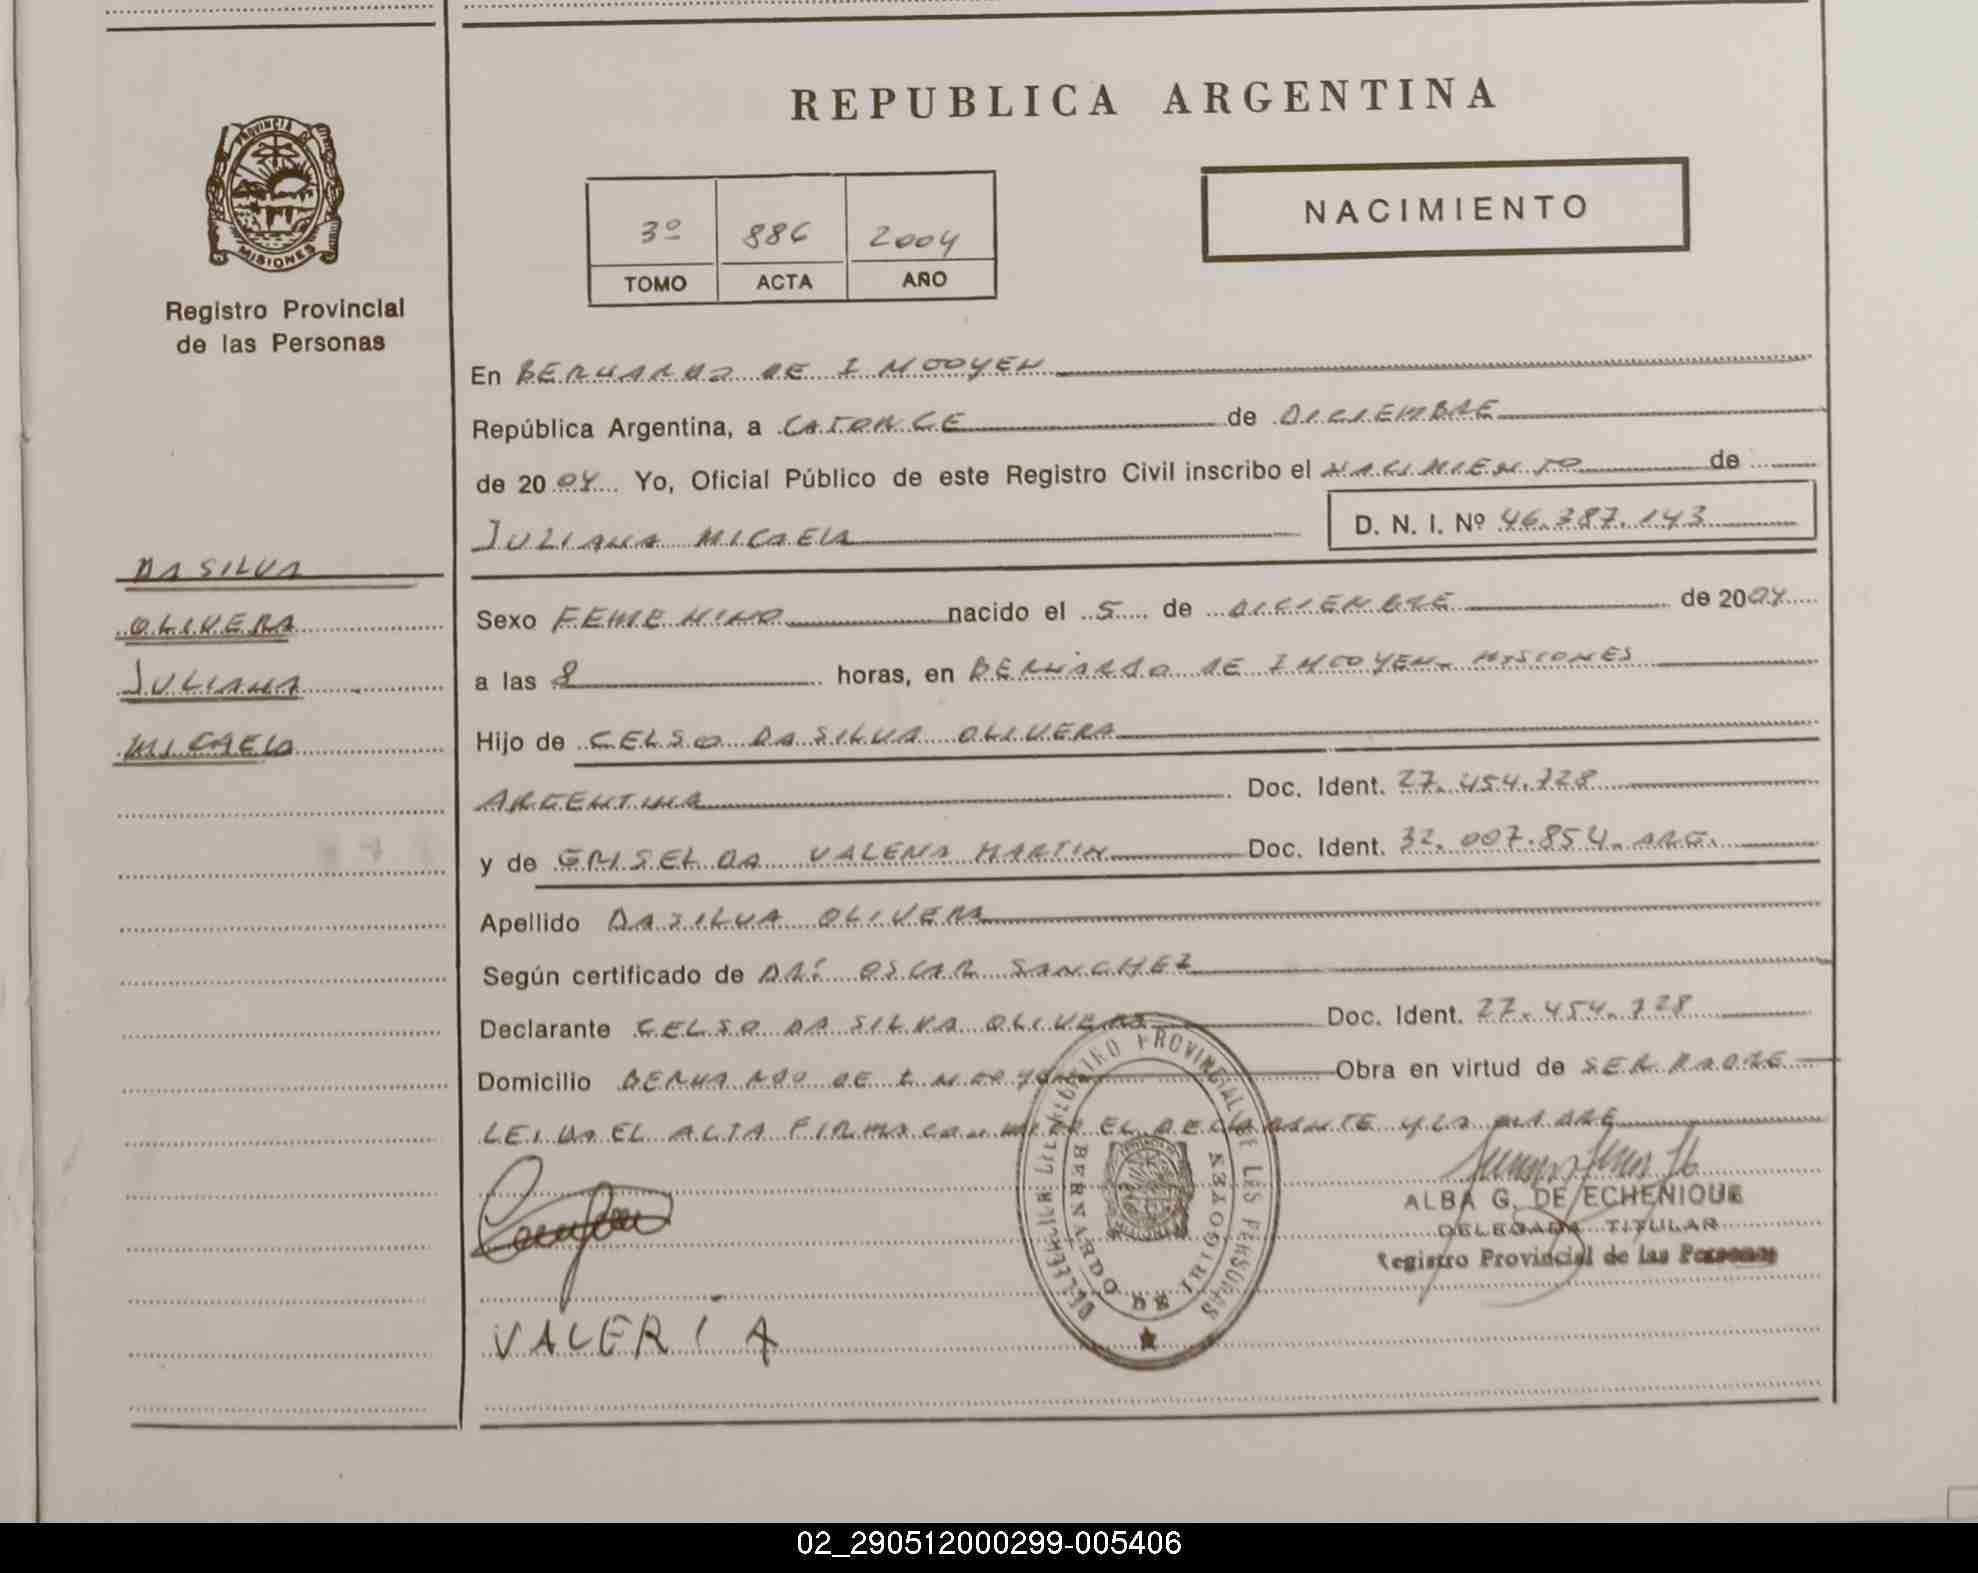 REPUBLICA ARGENTINA
PROVINCIA DE
MISIONES
Registro Provincial
de las Personas
3º 886 2004
TOMO ACTA AÑO
NACIMIENTO
En BERNARDO DE IRIGOYEN
República Argentina, a CATORCE de DICIEMBRE
de 2004 Yo, Oficial Público de este Registro Civil inscribo el NACIMIENTO de
JULIANA MICAELA D. N. I. Nº 46.387.143
DA SILVA
OLIVERA
JULIANA
MICAELA
Sexo FEMENINO nacido el 5 de DICIEMBRE de 2004
a las 8 horas, en BERNARDO DE IRIGOYEN MISIONES
Hijo de CELSO DA SILVA OLIVERA
ARGENTINA Doc. Ident. 27.454.728
y de GRISELDA VALERIA MARTIN Doc. Ident. 32.007.854. ARG.
Apellido DA SILVA OLIVERA
Según certificado de DR: OSCAR SANCHEZ
Declarante CELSO DA SILVA OLIVERA Doc. Ident. 27.454.728
Domicilio BERNARDO DE IRIGOYEN Obra en virtud de SER PADRE
LEIDA EL ACTA FIRMA CONMIGO EL DECLARANTE Y LA MADRE
ALBA G. DE ECHENIQUE
DELEGADA TITULAR
Registro Provincial de las Personas
REGISTRO PROVINCIAL DE LAS PERSONAS
BERNARDO DE IRIGOYEN
VALERIA
02_290512000299-005406